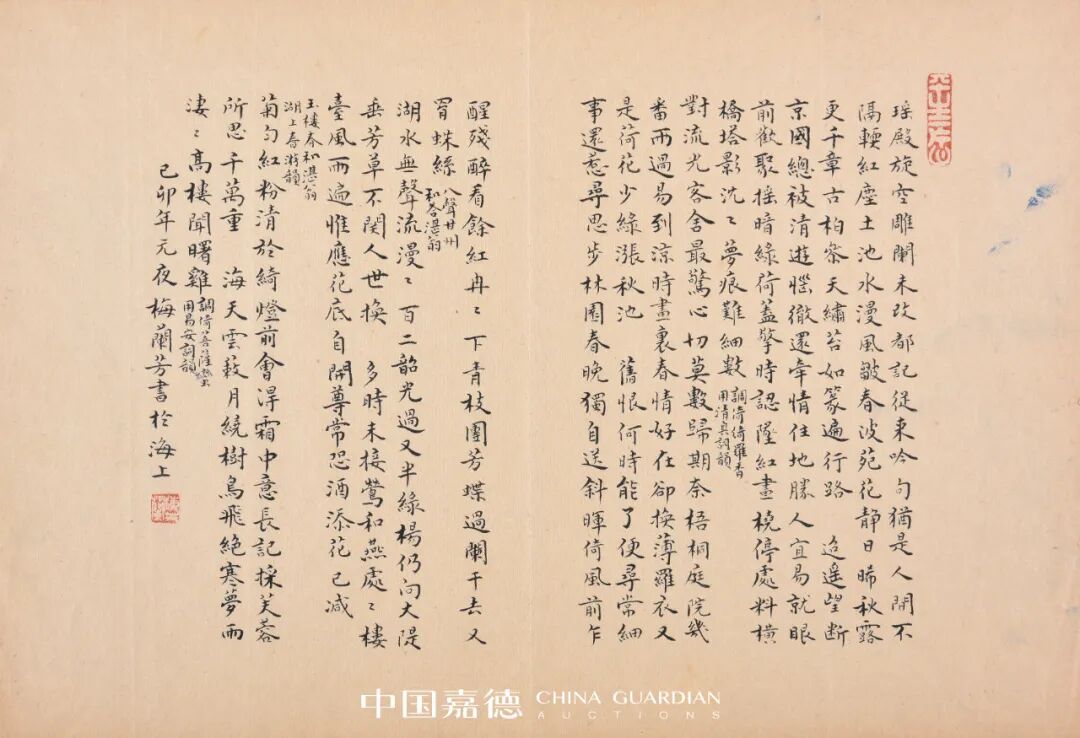 瑶殿旋空雕闌未改都記從来吟句猶是人間不
隔輭紅塵土池水漫風皺春波苑花静日晞秋露
更千章古柏參天繡苔如篆遍行路　迢遥望断
京國總被清遊惱徹還牵情住地勝人宜易就眼
前歡聚摇暗緑荷蓋擎時認墜紅畫橈停處料横
橋塔影沈〻夢痕難細數
調倚綺羅香
用清真詞韻
對流光客舍最驚心切莫數歸期奈梧桐庭院幾
番雨過易到涼時畫裏春情好在卻换薄羅衣又
是荷花少緑漲秋池　舊恨何時能了便尋常細
事還惹尋思步林園春晚獨自送斜暉倚風前乍
醒殘醉看餘紅冉〻下青枝團芳蝶過闌干去又
罥蛛絲
八聲甘州
和答湛翁
湖水無聲流漫〻百二韶光過又半緑楊仍向大隄
垂芳草不関人世換　多時未接鶯和燕處〻樓
臺風雨遍惟應花底自開尊常恐酒添花已減
玉樓春和湛翁
湖上春游韻
菊勻紅粉清於綺燈前會浔霜中意長記採芙蓉
所思千萬重　海天雲萩月繞樹鳥飛絶寒夢雨
凄〻高樓聞曙雞
調倚菩薩蠻
用易安詞韻
己卯年元夜梅蘭芳書於海上
中国嘉德 CHINA GUARDIAN
AUCTIONS